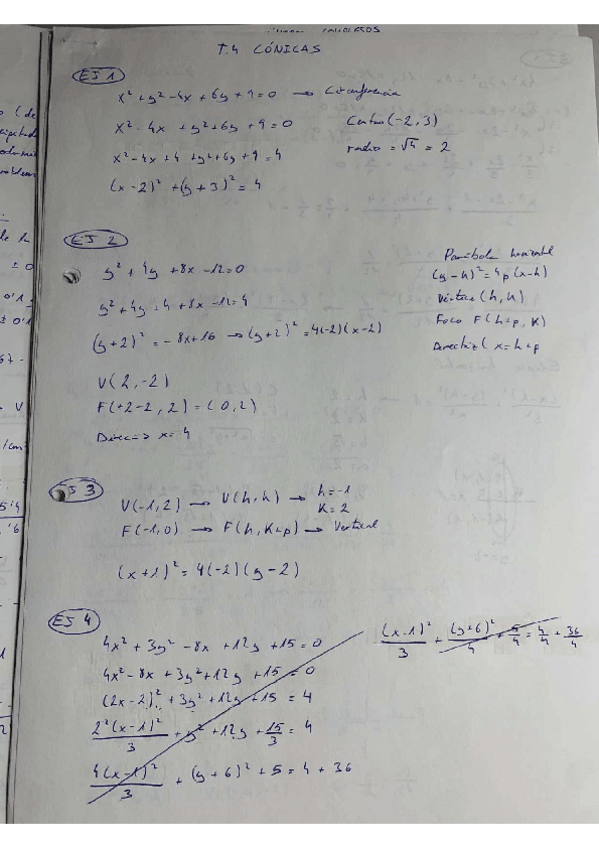 T.4 CÓNICAS
EJ 1
x² + y² - 4x + 6y + 9 = 0 → Circunferencia
x² - 4x + y² + 6y + 9 = 0 Centro (-2, 3)
x² - 4x + 4 + y² + 6y + 9 = 4 radio = √4 = 2
(x - 2)² + (y + 3)² = 4
EJ 2
y² + 4y + 8x - 12 = 0
y² + 4y + 4 + 8x - 12 = 4
(y + 2)² = - 8x + 16 → (y + 2)² = 4(-2)(x - 2)
V(2, -2)
F(+2 - 2, 2) = (0, 2)
Direc → x = 4
Parábola horizontal
(y - k)² = 4p(x - h)
Vértice (h, k)
Foco F(h + p, K)
Directriz x = h + p
EJ 3
V(-1, 2) → V(h, k) → h = -1
K = 2
F(-1, 0) → F(h, K + p) → Vertical
(x + 1)² = 4(-2)(y - 2)
EJ 4
4x² + 3y² - 8x + 12y + 15 = 0
4x² - 8x + 3y² + 12y + 15 = 0
(2x - 2)² + 3y² + 12y + 15 = 4
2²(x - 1)²/3 + y² + 12y + 15/3 = 4
4(x - 1)²/3 + (y + 6)² + 5 = 4 + 36
(x - 1)²/3 + (y + 6)²/4 + 5/4 = 4/4 + 36/4